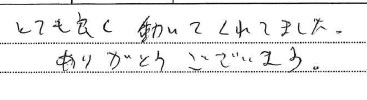 とても良く 動いてくれてました。
ありがとうございます。